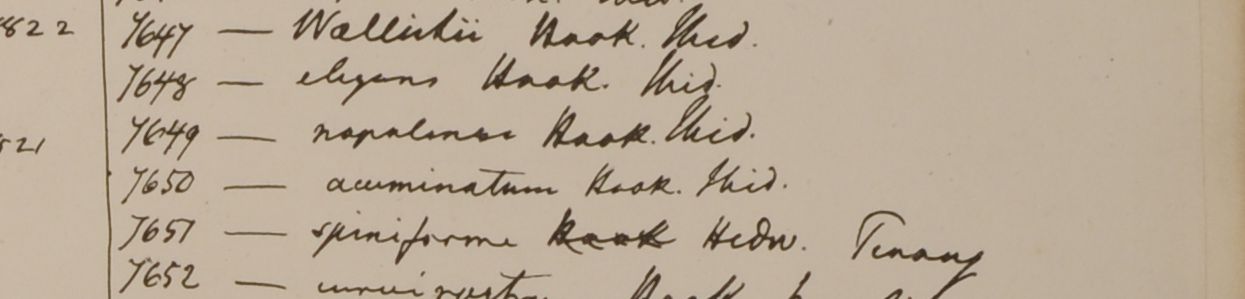 1822 7647 — Wallichii Hook. Ibid.
7648 — elegans Hook. Ibid.
7649 — nepalense Hook. Ibid.
521 7650 — acuminatum Hook. Ibid.
7651 — spiniforme Hook Hedw. Penang
7652 — Hook